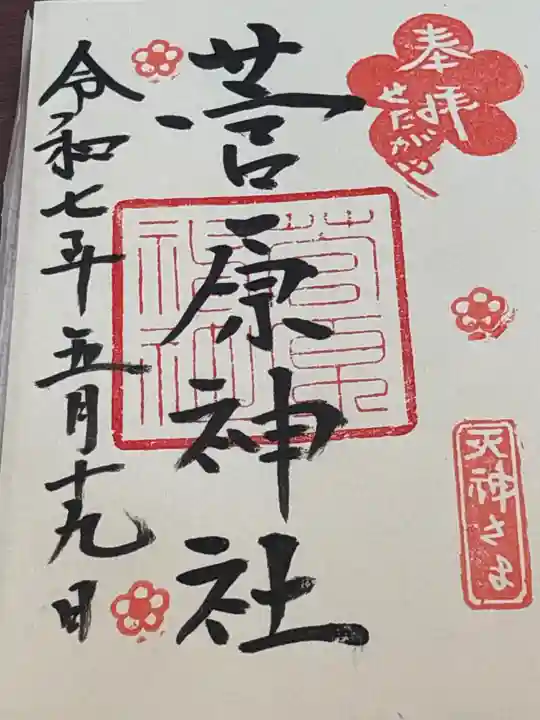 奉拝
せたがや
天神さま
菅原神社
菅原
神社
令和七年五月十九日